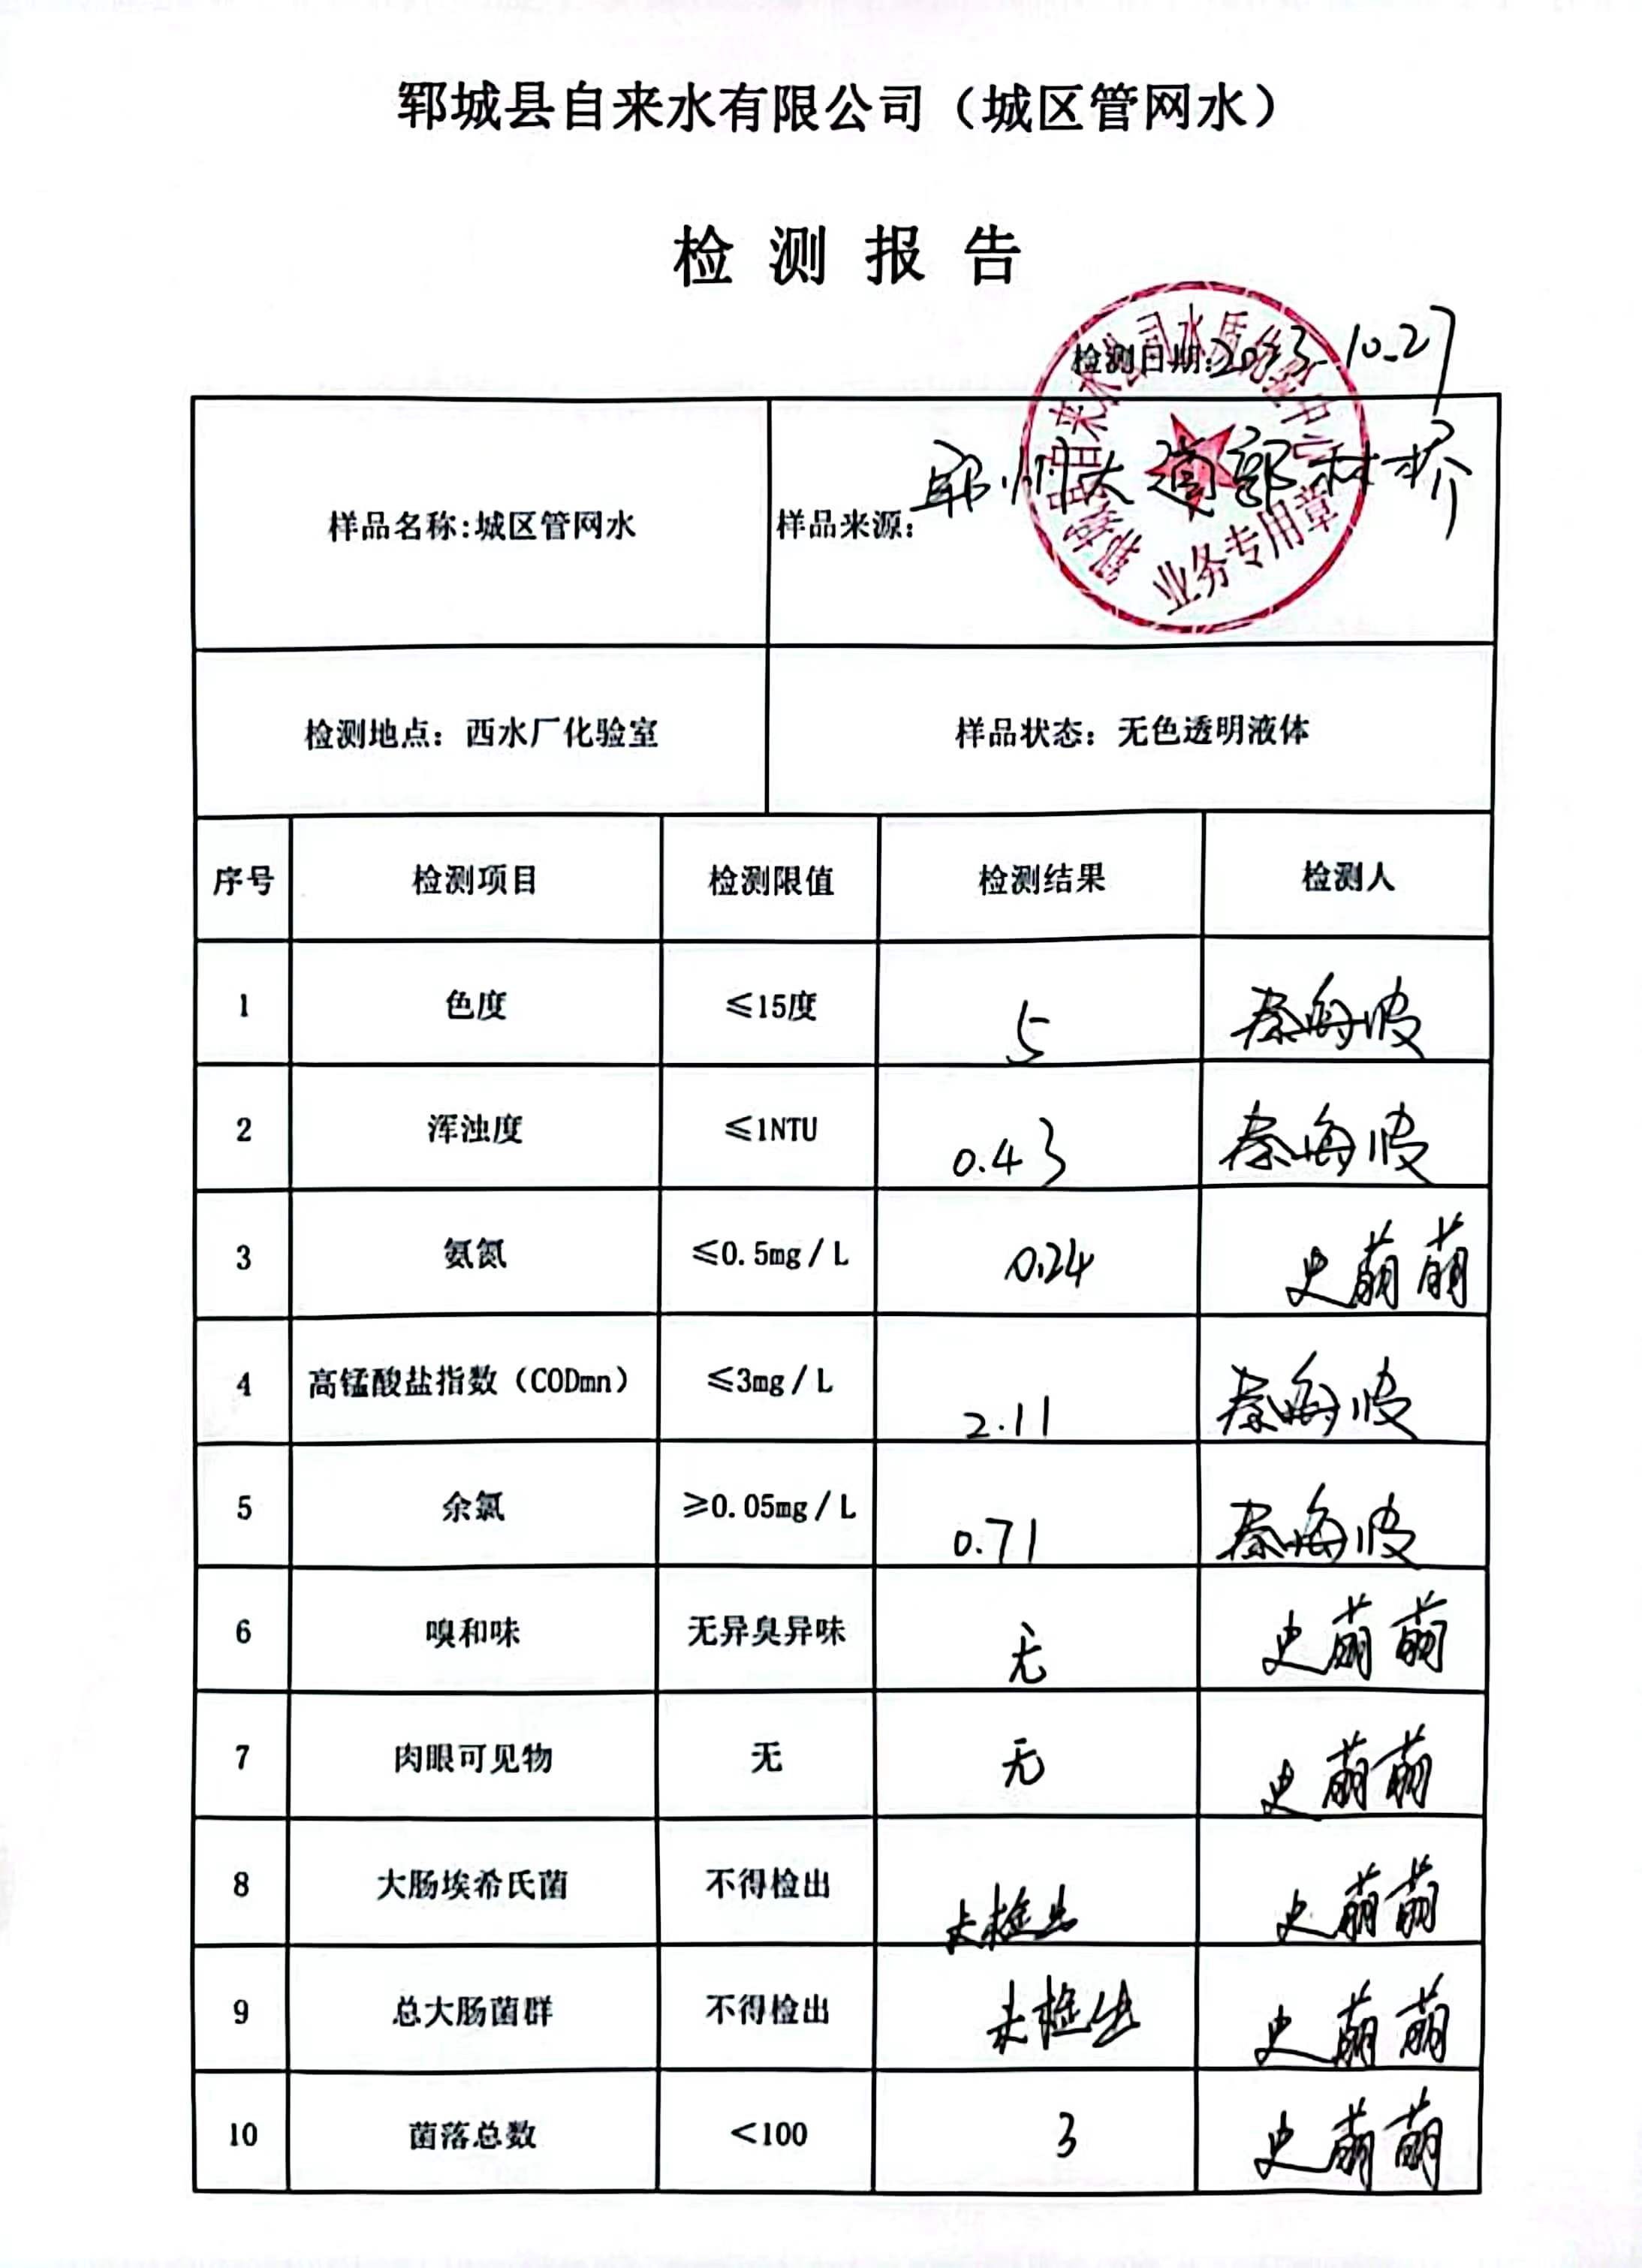 郓城县自来水有限公司（城区管网水）
检测报告
检测日期:2023-10.27
样品名称:城区管网水
样品来源: 郓州大道郭村桥
业务专用章
检测地点：西水厂化验室
样品状态：无色透明液体
序号 检测项目 检测限值 检测结果 检测人
1 色度 ≤15度 5 秦海波
2 浑浊度 ≤1NTU 0.43 秦海波
3 氨氮 ≤0.5mg/L 0.24 史萌萌
4 高锰酸盐指数（CODmn） ≤3mg/L 2.11 秦海波
5 余氯 ≥0.05mg/L 0.71 秦海波
6 嗅和味 无异臭异味 无 史萌萌
7 肉眼可见物 无 无 史萌萌
8 大肠埃希氏菌 不得检出 未检出 史萌萌
9 总大肠菌群 不得检出 未检出 史萌萌
10 菌落总数 <100 3 史萌萌